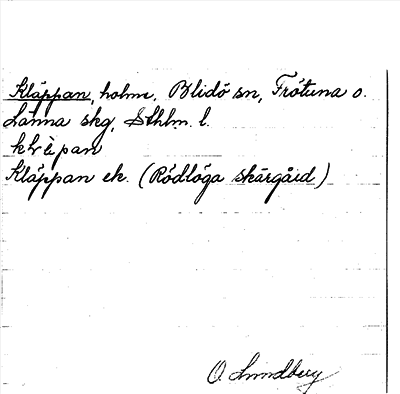 Kläppan, holm, Blidö sn, Frötuna o.
Länna skg, Sthlm. l.
klèpan
Kläppan ek. (Rödlöga skärgård)
O. Lundberg